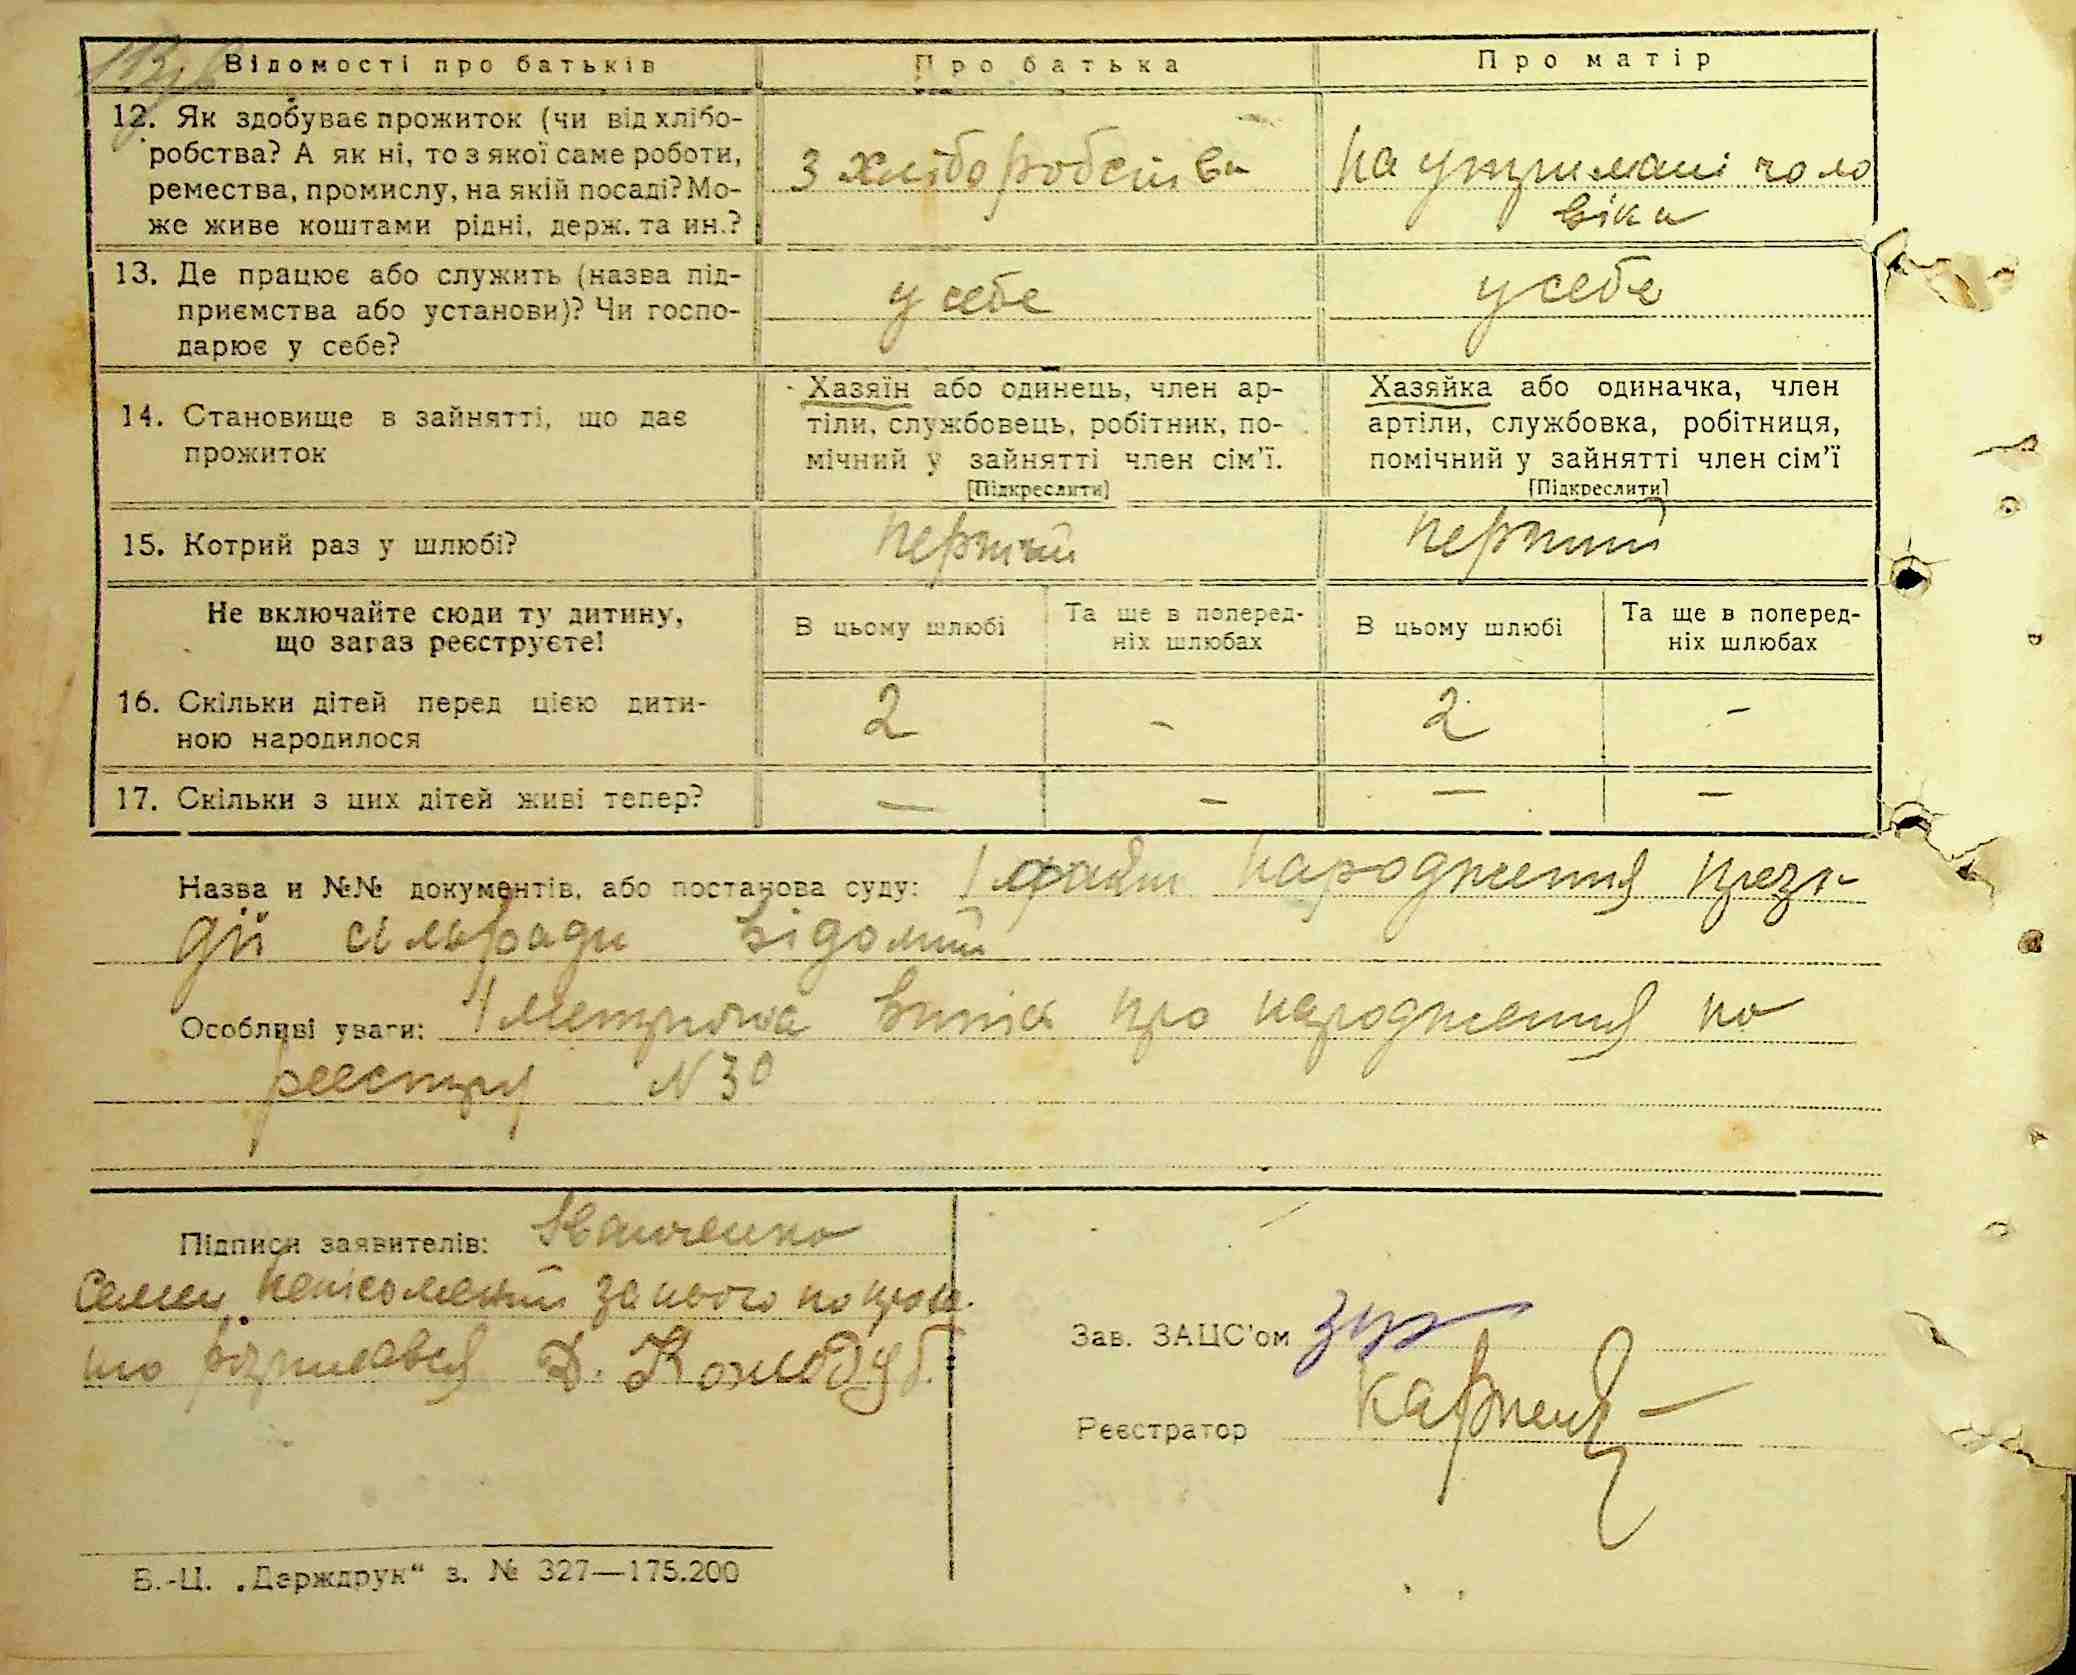 Відомості про батьків
Про батька
Про матір
12. Як здобуває прожиток (чи від хлібо-
робства? А як ні, то з якої саме роботи,
ремества, промислу, на якій посаді? Мо-
же живе коштами рідні, держ. та ин.?
з хліборобства
на утримані чоло
віка
13. Де працює або служить (назва під-
приємства або установи)? Чи госпо-
дарює у себе?
у себе
у себе
14. Становище в зайнятті, що дає
прожиток
Хазяїн або одинець, член ар-
тіли, службовець, робітник, по-
мічний у зайнятті член сім’ї.
[Підкреслити]
Хазяйка або одиначка, член
артіли, службовка, робітниця,
помічний у зайнятті член сім’ї
[Підкреслити]
15. Котрий раз у шлюбі?
перший
перший
Не включайте сюди ту дитину,
що зараз реєструєте!
В цьому шлюбі
Та ще в поперед-
ніх шлюбах
В цьому шлюбі
Та ще в поперед-
ніх шлюбах
16. Скільки дітей перед цією дити-
ною народилося
2
-
2
-
17. Скільки з цих дітей живі тепер?
—
—
—
—
Назва и №№ документів, або постанова суду: факт народження прези-
дії сільради відомий
Особливі уваги: метрична випис про народження по
реєстру N 30
Підписи заявителів: Іванченко
Семен неписьменний за нього по прозь-
розписався Д. Кожодуб.
Зав. ЗАЦС’ом
Реєстратор Карпець
Б.-Ц. „Держдрук“ з. № 327—175.200